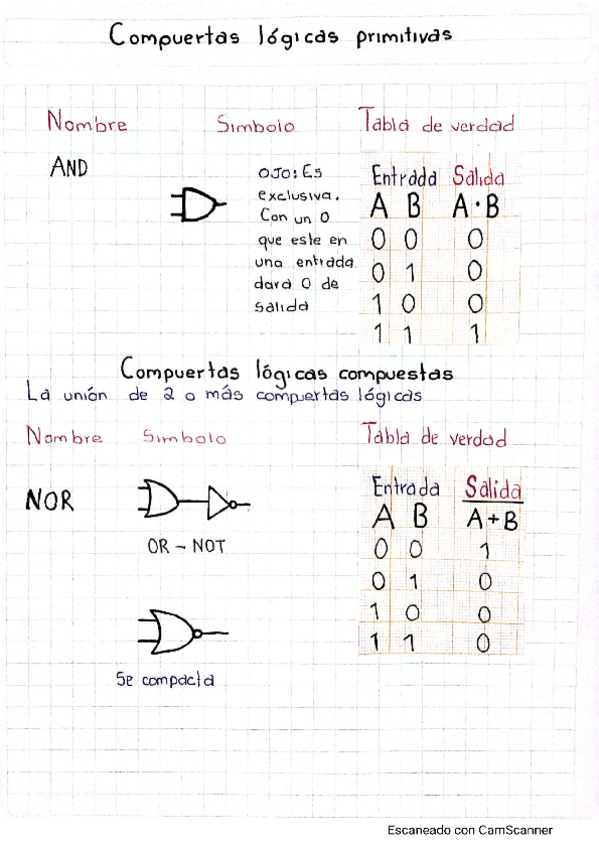 Compuertas lógicas primitivas
Nombre Simbolo Tabla de verdad
AND
OJO: Es
exclusiva.
Con un 0
que este en
una entrada
dará 0 de
salida
Entrada Salida
A B A·B
0 0 0
0 1 0
1 0 0
1 1 1
Compuertas lógicas compuestas
La unión de 2 o más compuertas lógicas
Nombre Simbolo Tabla de verdad
NOR
OR - NOT
Se compacta
Entrada Salida
A B A+B
0 0 1
0 1 0
1 0 0
1 1 0
Escaneado con CamScanner